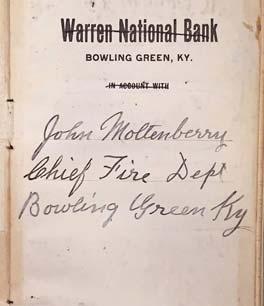 Warren National Bank
BOWLING GREEN, KY.
IN ACCOUNT WITH
John Moltenberry
Chief Fire Dept
Bowling Green Ky